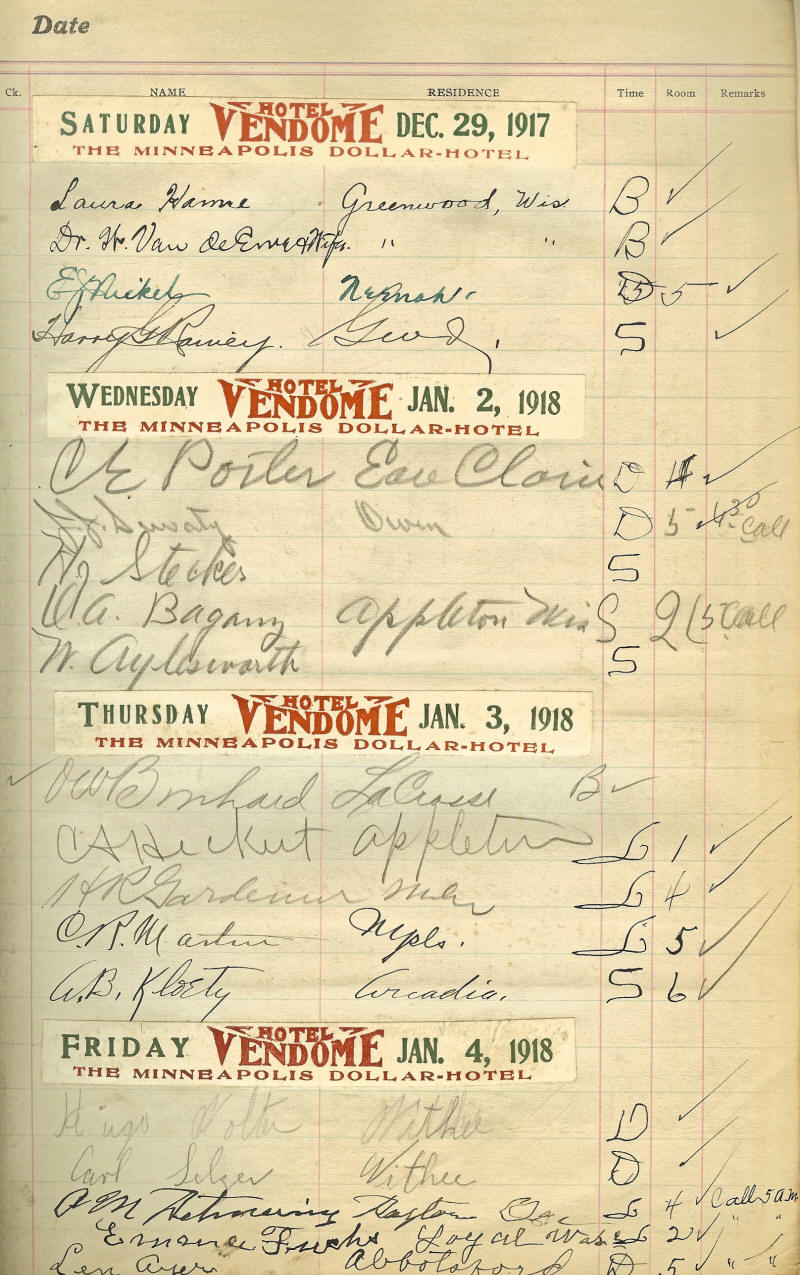 Date
Ck. NAME RESIDENCE Time Room Remarks
SATURDAY HOTEL VENDOME DEC. 29, 1917
THE MINNEAPOLIS DOLLAR-HOTEL
Laura Hamre Greenwood, Wis B ✓
Dr. W. Van de Erve & Wife. " " B ✓
Neenah. 5 ✓
Harry G Rainey. Gwd, S ✓
WEDNESDAY HOTEL VENDOME JAN. 2, 1918
THE MINNEAPOLIS DOLLAR-HOTEL
C E Porter Eau Claire D 4 ✓
Owen D 5 ✓ 4:30 Call
Stecker S
A. Appleton Wis S 2 (5 Call
W. Aylesworth S
THURSDAY HOTEL VENDOME JAN. 3, 1918
THE MINNEAPOLIS DOLLAR-HOTEL
✓ OW LaCrosse B ✓
CA Heckert Appleton L 1 ✓
HR Gardener L 4 ✓
C. R. Martin Mpls. L 5 ✓
A. B. Kloety Arcadia. S 6 ✓
FRIDAY HOTEL VENDOME JAN. 4, 1918
THE MINNEAPOLIS DOLLAR-HOTEL
Hugo Nolte Withee D ✓
Carl Selzer Withee D ✓
L 4 ✓ Call 5 A.M.
Emma Fuchs Loyal Wis L 2 ✓ " "
Len Ayer Abbotsford D 5 ✓ " "